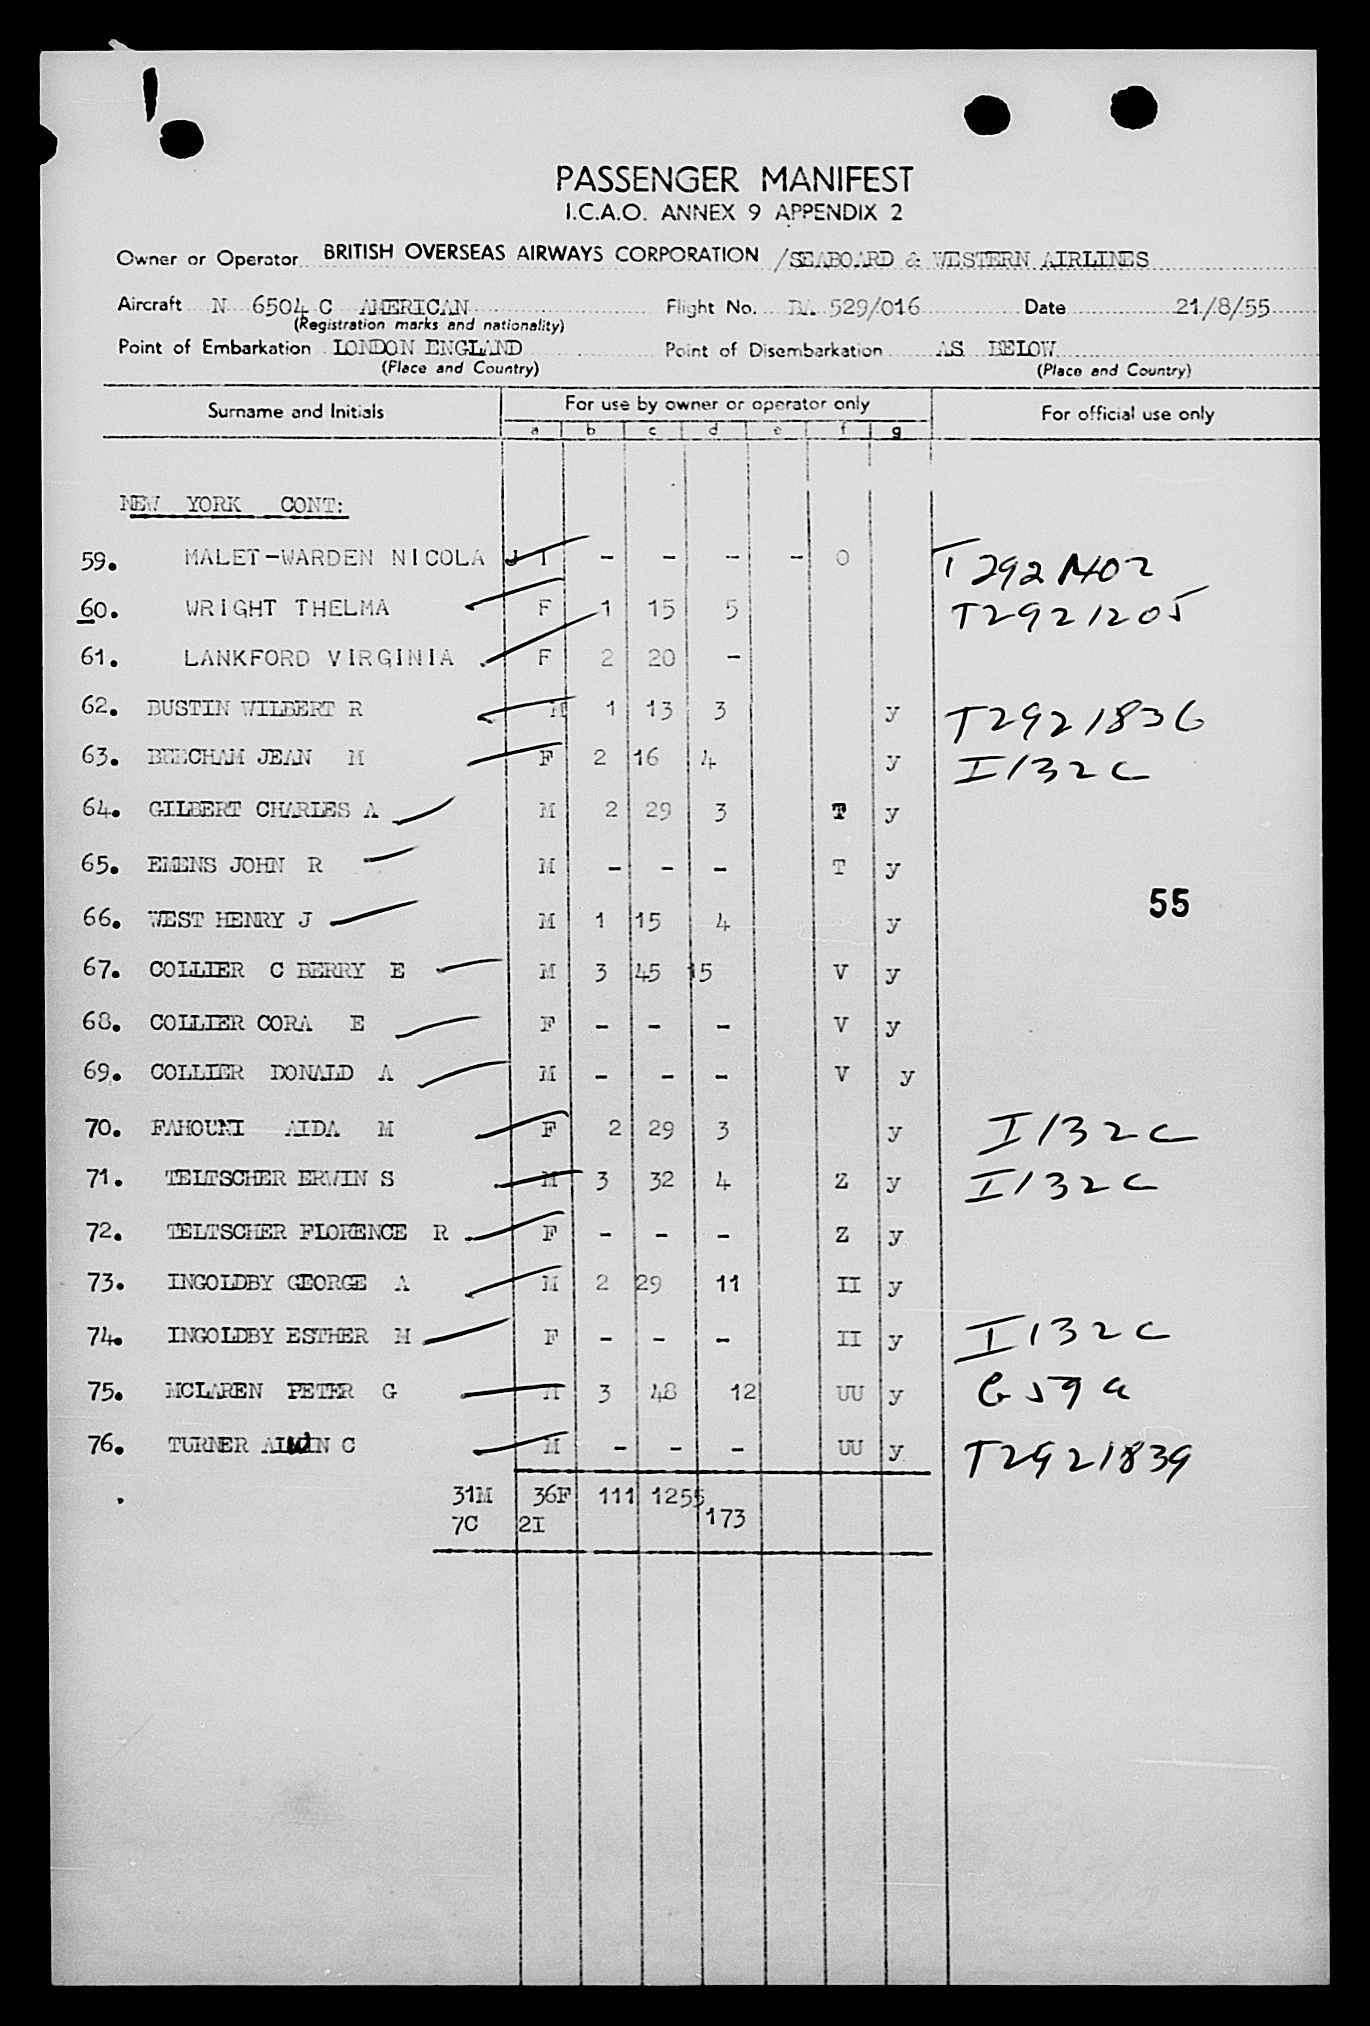 PASSENGER MANIFEST
I.C.A.O. ANNEX 9 APPENDIX 2
Owner or Operator BRITISH OVERSEAS AIRWAYS CORPORATION /SEABOARD & WESTERN AIRLINES
Aircraft N 6504 C AMERICAN Flight No. BA 529/016 Date 21/8/55
(Registration marks and nationality)
Point of Embarkation LONDON ENGLAND Point of Disembarkation AS BELOW
(Place and Country) (Place and Country)
Surname and Initials For use by owner or operator only For official use only
a b c d e f g
NEW YORK CONT:
59. MALET-WARDEN NICOLA J I - - - - O
60. WRIGHT THELMA F 1 15 5 T2921205
61. LANKFORD VIRGINIA F 2 20 -
62. BUSTIN WILBERT R M 1 13 3 y T2921836
63. BEECHAM JEAN M F 2 16 4 y I132C
64. GILBERT CHARLES A M 2 29 3 T y
65. EMENS JOHN R M - - - T y
66. WEST HENRY J M 1 15 4 y
55
67. COLLIER C BERRY E M 3 45 15 V y
68. COLLIER CORA E F - - - V y
69. COLLIER DONALD A M - - - V y
70. FAHOUMI AIDA M F 2 29 3 y I132C
71. TELTSCHER ERWIN S M 3 32 4 Z y I132C
72. TELTSCHER FLORENCE R F - - - Z y
73. INGOLDBY GEORGE A M 2 29 11 II y
74. INGOLDBY ESTHER M F - - - II y I132C
75. MCLAREN PETER G M 3 48 12 UU y G59a
76. TURNER ALWIN C M - - - UU y T2921839
31M 36F 111 1255
7C 2I 173